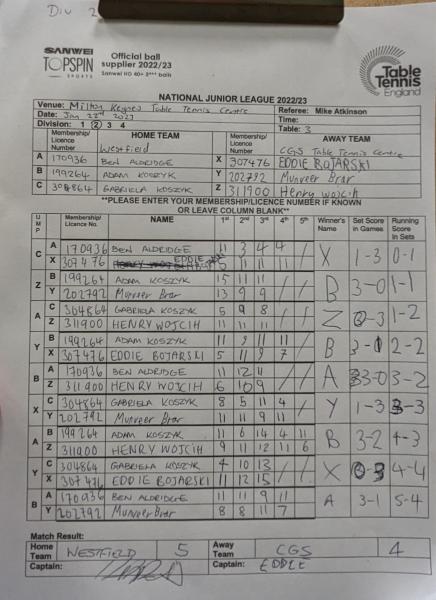 Div 2
SANWEI
TOPSPIN
SPORTS
Official ball
supplier 2022/23
Sanwei HD 40+ 3*** balls
Table
Tennis
England
NATIONAL JUNIOR LEAGUE 2022/23
Venue: Milton Keynes Table Tennis Centre Referee: Mike Atkinson
Date: Jan 22nd 2023 Time:
Division: 1 2 3 4 Table: 3
Membership/Licence Number HOME TEAM Membership/Licence Number AWAY TEAM
Westfield CGS Table Tennis Centre
A 170936 BEN ALDRIDGE X 307476 EDDIE BOJARSKI
B 199264 ADAM KOSZYK Y 202792 Munveer Brar
C 304864 GABRIELA KOSZYK Z 311900 Henry WOJCIH
**PLEASE ENTER YOUR MEMBERSHIP/LICENCE NUMBER IF KNOWN
OR LEAVE COLUMN BLANK**
UMP Membership/Licence No. NAME 1st 2nd 3rd 4th 5th Winner's Name Set Score in Games Running Score in Sets
C A 170936 BEN ALDRIDGE 11 3 4 4 / X 1-3 0-1
X 307476 EDDIE 11 11 11 /
Z B 199264 ADAM KOSZYK 15 11 11 / / B 3-0 1-1
Y 202792 Munveer Brar 13 9 9 / /
A C 304864 GABRIELA KOSZYK 5 9 8 / / Z 0-3 1-2
Z 311900 HENRY WOJCIH 11 11 11 / /
Y B 199264 ADAM KOSZYK 11 9 11 11 / B 3-1 2-2
X 307476 EDDIE BOJARSKI 5 11 9 7 /
B A 170936 BEN ALDRIDGE 11 12 11 / / A 3-0 3-2
Z 311900 HENRY WOJCIH 6 10 9 / /
X C 304864 GABRIELA KOSZYK 8 5 11 4 / Y 1-3 3-3
Y 202792 Munveer Brar 11 11 9 11 /
A B 199264 ADAM KOSZYK 11 6 14 4 11 B 3-2 4-3
Z 311900 HENRY WOJCIH 9 11 12 11 6
Y C 304864 GABRIELA KOSZYK 4 10 13 / / X 0-3 4-4
X 307476 EDDIE BOJARSKI 11 12 15 / /
B A 170936 BEN ALDRIDGE 11 11 9 11 / A 3-1 5-4
Y 202792 Munveer Brar 8 8 11 7 /
Match Result:
Home Team WESTFIELD 5 Away Team CGS 4
Captain: Captain: EDDIE